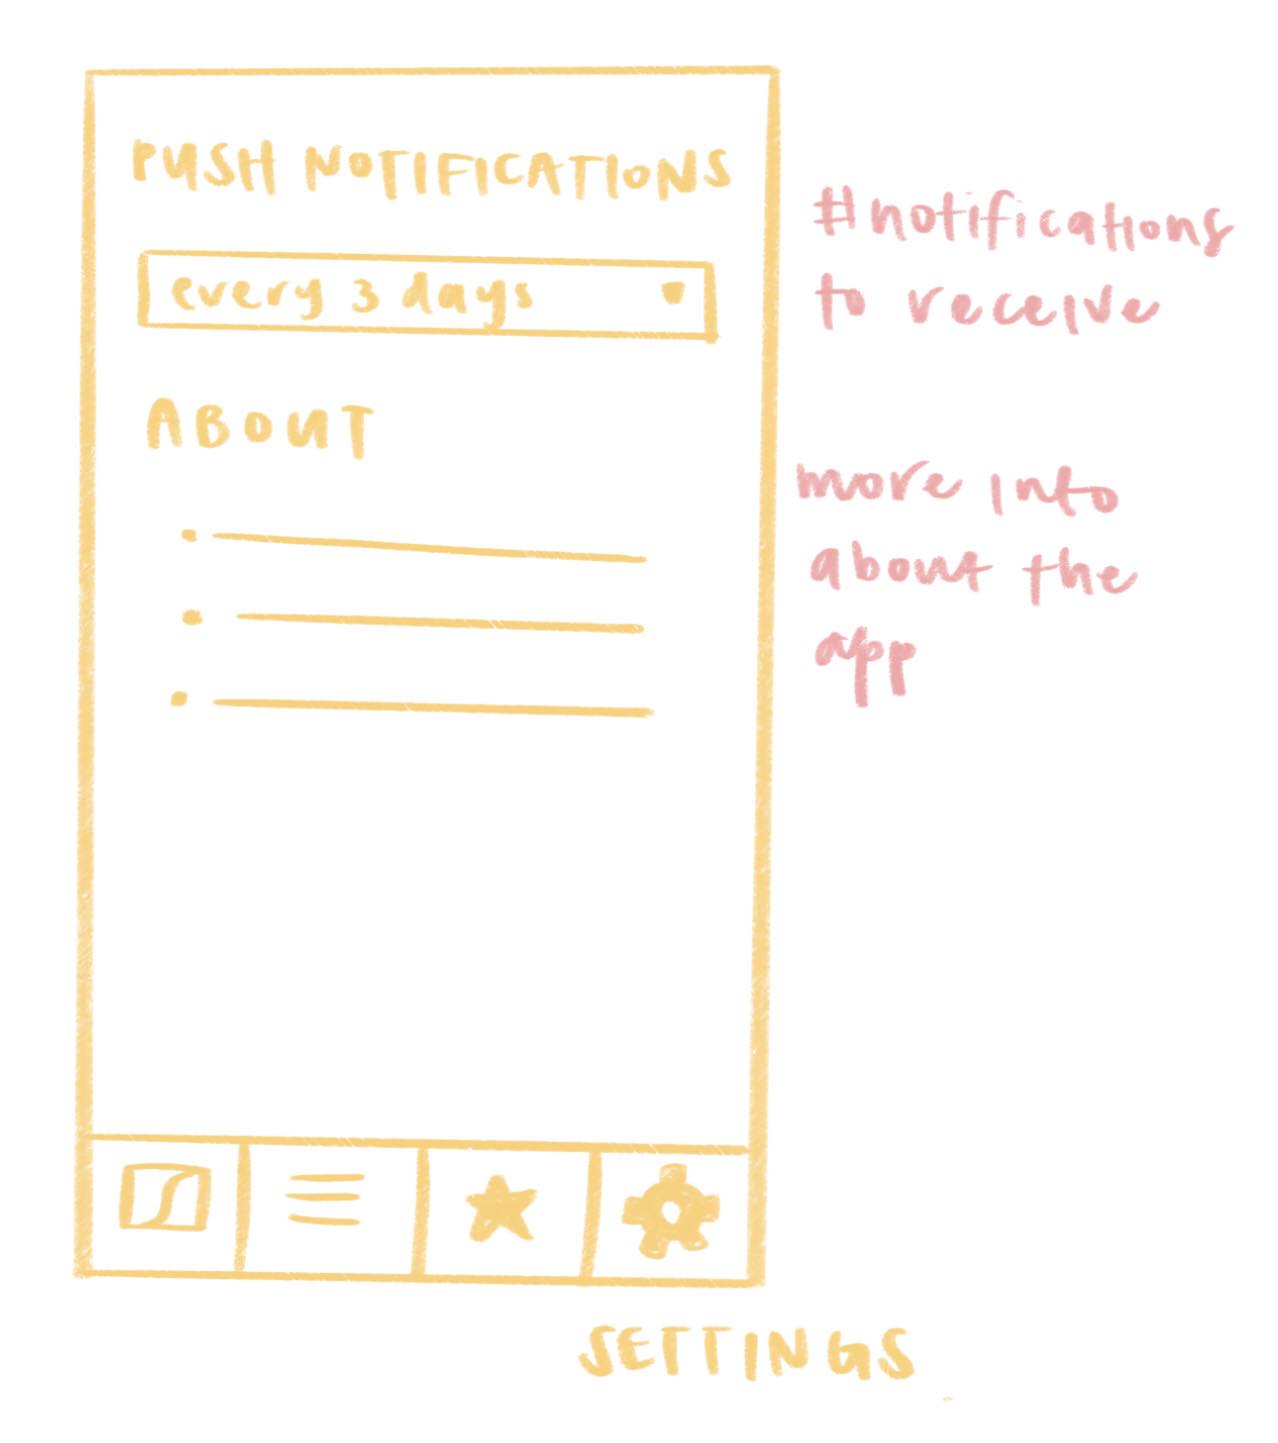 PUSH NOTIFICATIONS
every 3 days
ABOUT
#notifications
to receive
more info
about the
app
SETTINGS